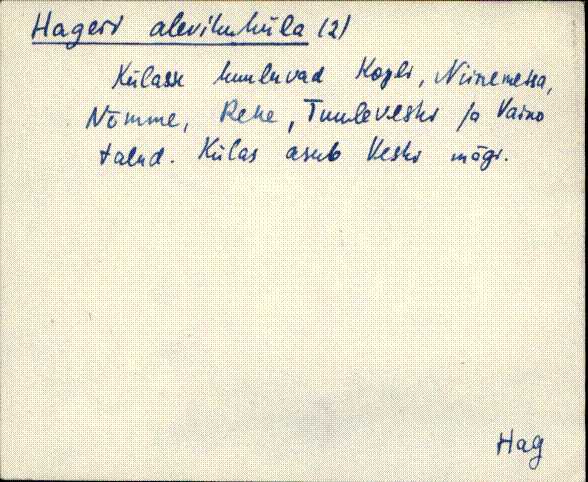 Hageri alevikuküla (2)
Külasse kuuluvad Kopli, Niinemetsa,
Nõmme, Rehe, Tuuleveski ja Vaino
talud. Külas asub Veski mägi.
Hag